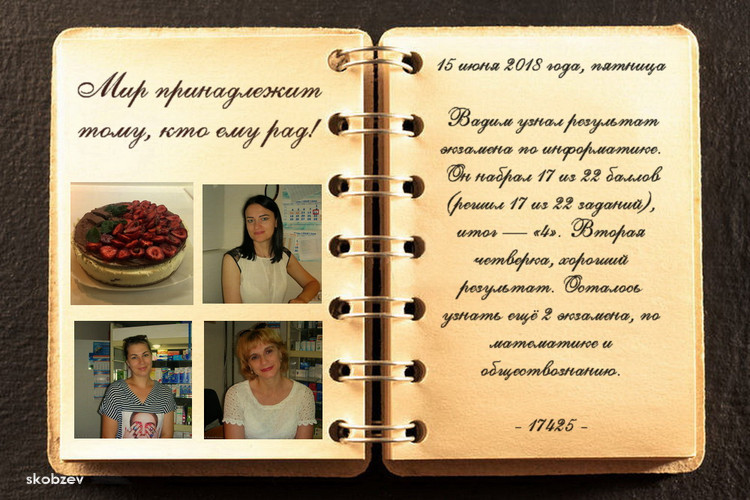 Мир принадлежит
тому, кто ему рад!
15 июня 2018 года, пятница
Вадим узнал результат
экзамена по информатике.
Он набрал 17 из 22 баллов
(решил 17 из 22 заданий),
итог — «4». Вторая
четверка, хороший
результат. Осталось
узнать ещё 2 экзамена, по
математике и
обществознанию.
- 17425 -
skobzev